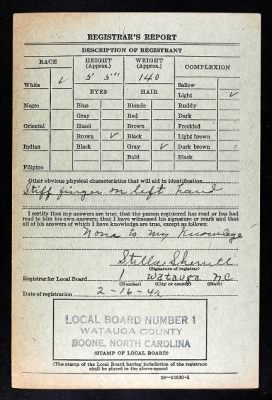 REGISTRAR'S REPORT
DESCRIPTION OF REGISTRANT
RACE HEIGHT (Approx.) WEIGHT (Approx.) COMPLEXION
White ✓ 5' 5" 140 Sallow
EYES HAIR Light ✓
Negro Blue Blonde Ruddy
Gray Red Dark
Oriental Hazel Brown Freckled
Brown ✓ Black Light brown
Indian Black Gray ✓ Dark brown
Bald Black
Filipino
Other obvious physical characteristics that will aid in identification
Stiff finger on left hand
I certify that my answers are true; that the person registered has read or has had
read to him his own answers; that I have witnessed his signature or mark and that
all of his answers of which I have knowledge are true, except as follows:
None to my Knowledge
Stella Sherrill
(Signature of registrar)
Registrar for Local Board 1 Watauga N.C.
(Number) (City or county) (State)
Date of registration 2-16-42
LOCAL BOARD NUMBER 1
WATAUGA COUNTY
BOONE, NORTH CAROLINA
(STAMP OF LOCAL BOARD)
(The stamp of the Local Board having jurisdiction of the registrant
shall be placed in the above space.)